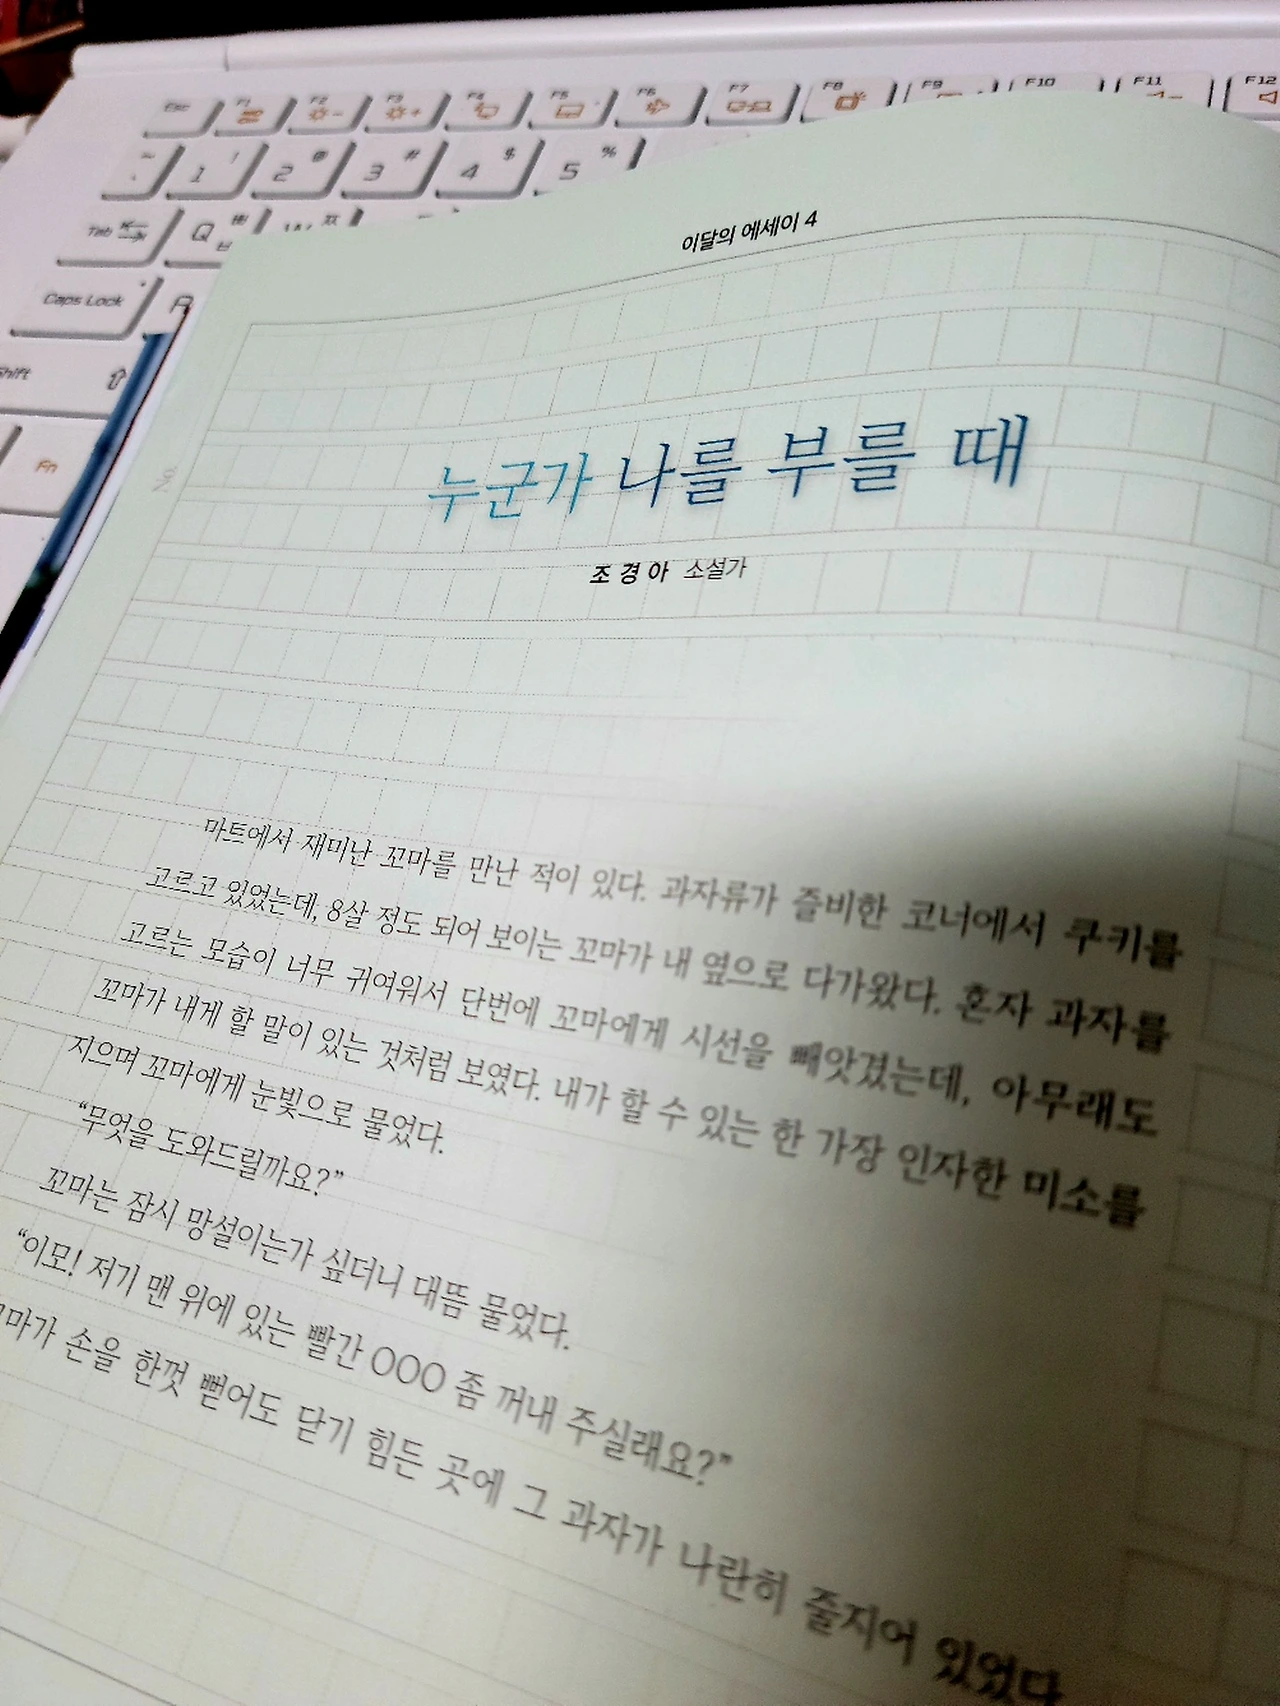 Esc F1 F2 F3 F4 F5 F6 F7 F8 F9 F10 F11 F12
~ ` 1 ! 2 @ 3 # 4 $ 5 %
Tab Q ㅃ ㅂ W ㅉ
Caps Lock A
Shift
Fn
이달의 에세이 4
No
누군가 나를 부를 때
조경아 소설가
마트에서 재미난 꼬마를 만난 적이 있다. 과자류가 즐비한 코너에서 쿠키를
고르고 있었는데, 8살 정도 되어 보이는 꼬마가 내 옆으로 다가왔다. 혼자 과자를
고르는 모습이 너무 귀여워서 단번에 꼬마에게 시선을 빼앗겼는데, 아무래도
꼬마가 내게 할 말이 있는 것처럼 보였다. 내가 할 수 있는 한 가장 인자한 미소를
지으며 꼬마에게 눈빛으로 물었다.
“무엇을 도와드릴까요?”
꼬마는 잠시 망설이는가 싶더니 대뜸 물었다.
“이모! 저기 맨 위에 있는 빨간 OOO 좀 꺼내 주실래요?”
꼬마가 손을 한껏 뻗어도 닫기 힘든 곳에 그 과자가 나란히 줄지어 있었다